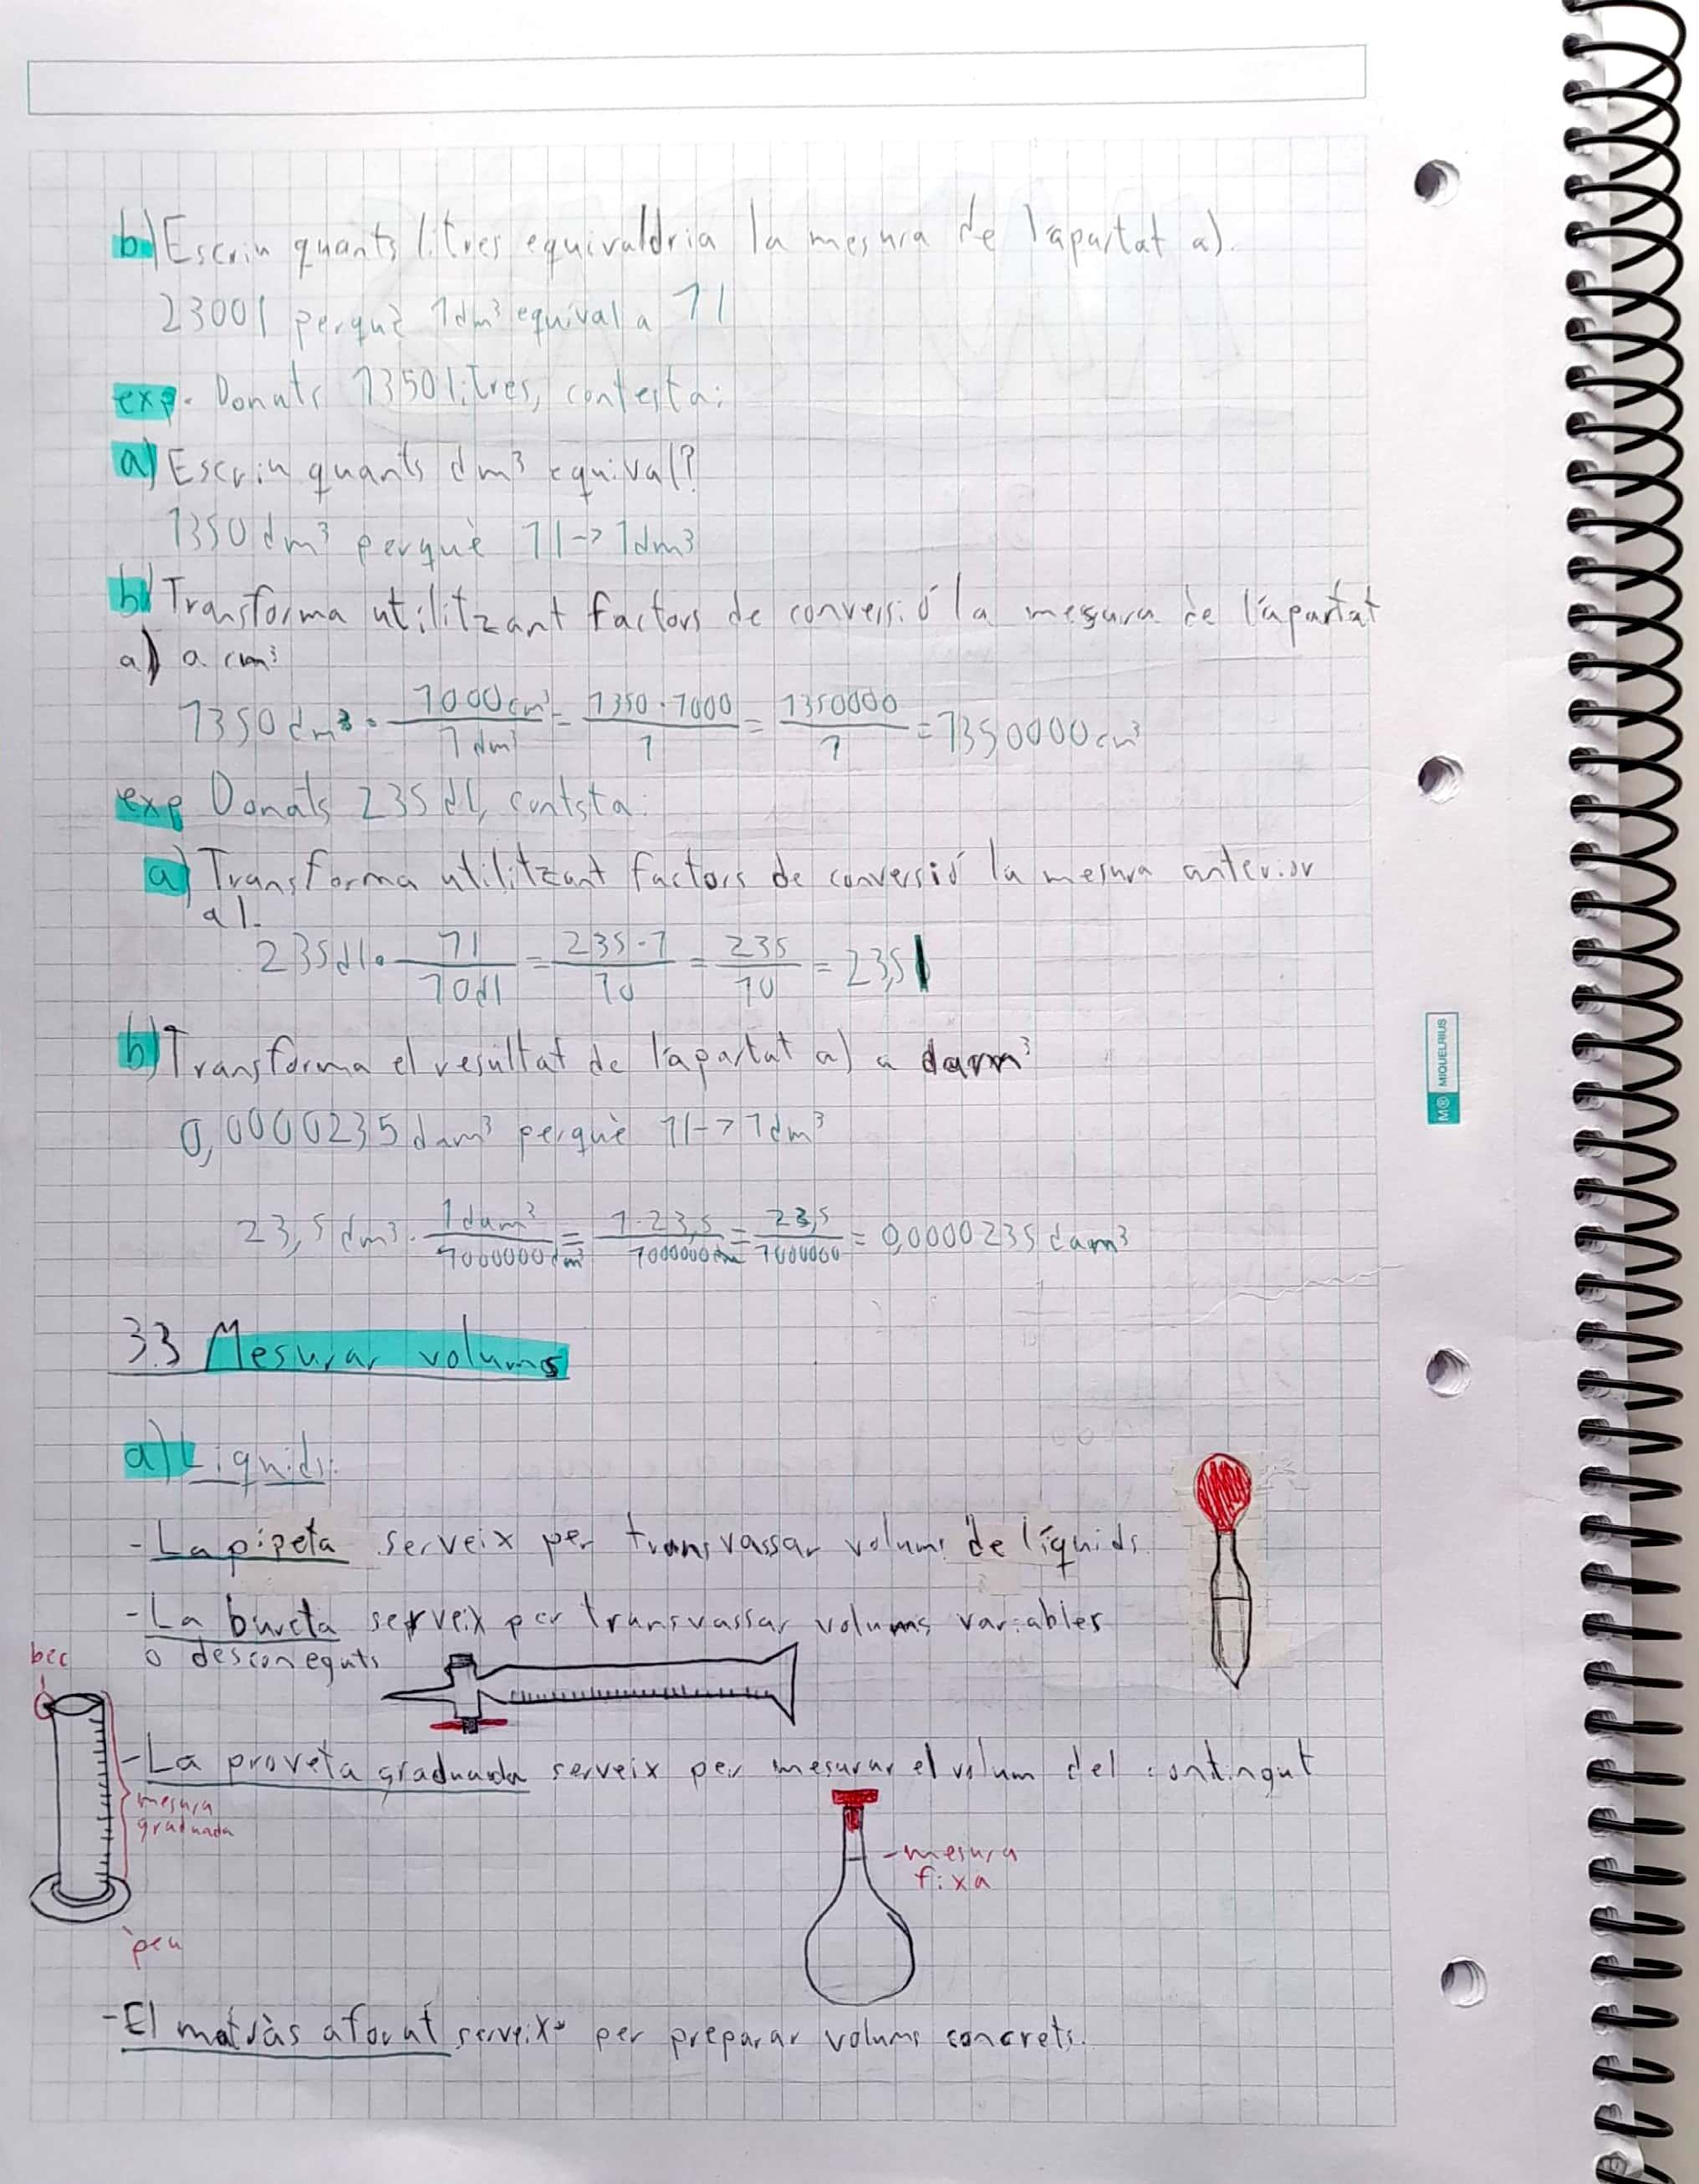 b) Escriu quants litres equivaldria la mesura de l'apartat a).
2300 l perquè 1dm³ equival a 1 l
exp. Donats 1350 litres, contesta:
a) Escriu quants dm³ equival?
1350 dm³ perquè 1 l -> 1dm³
b) Transforma utilitzant factors de conversió la mesura de l'apartat
a) a cm³
1350 dm³ · 1000 cm³ / 1 dm³ = 1350 · 1000 / 1 = 1350000 / 1 = 1350000 cm³
exp Donats 235 dl, contsta:
a) Transforma utilitzant factors de conversió la mesura anterior
a l.
235 dl · 1 l / 10 dl = 235 · 1 / 10 = 235 / 10 = 23,5 l
b) Transforma el resultat de l'apartat a) a dam³
0,0000235 dam³ perquè 1 l -> 1 dm³
23,5 dm³ · 1 dam³ / 1000000 dm³ = 1 · 23,5 / 1000000 dm = 23,5 / 1000000 = 0,0000235 dam³
3.3 Mesurar volums
a) Líquids:
- La pipeta serveix per transvassar volums de líquids.
- La bureta serveix per transvassar volums variables
o desconeguts
bec
- La proveta graduada serveix per mesurar el volum del contingut
mesura
graduada
- mesura
fixa
peu
- El matràs aforat serveix per preparar volums concrets.
M® MIQUELRIUS